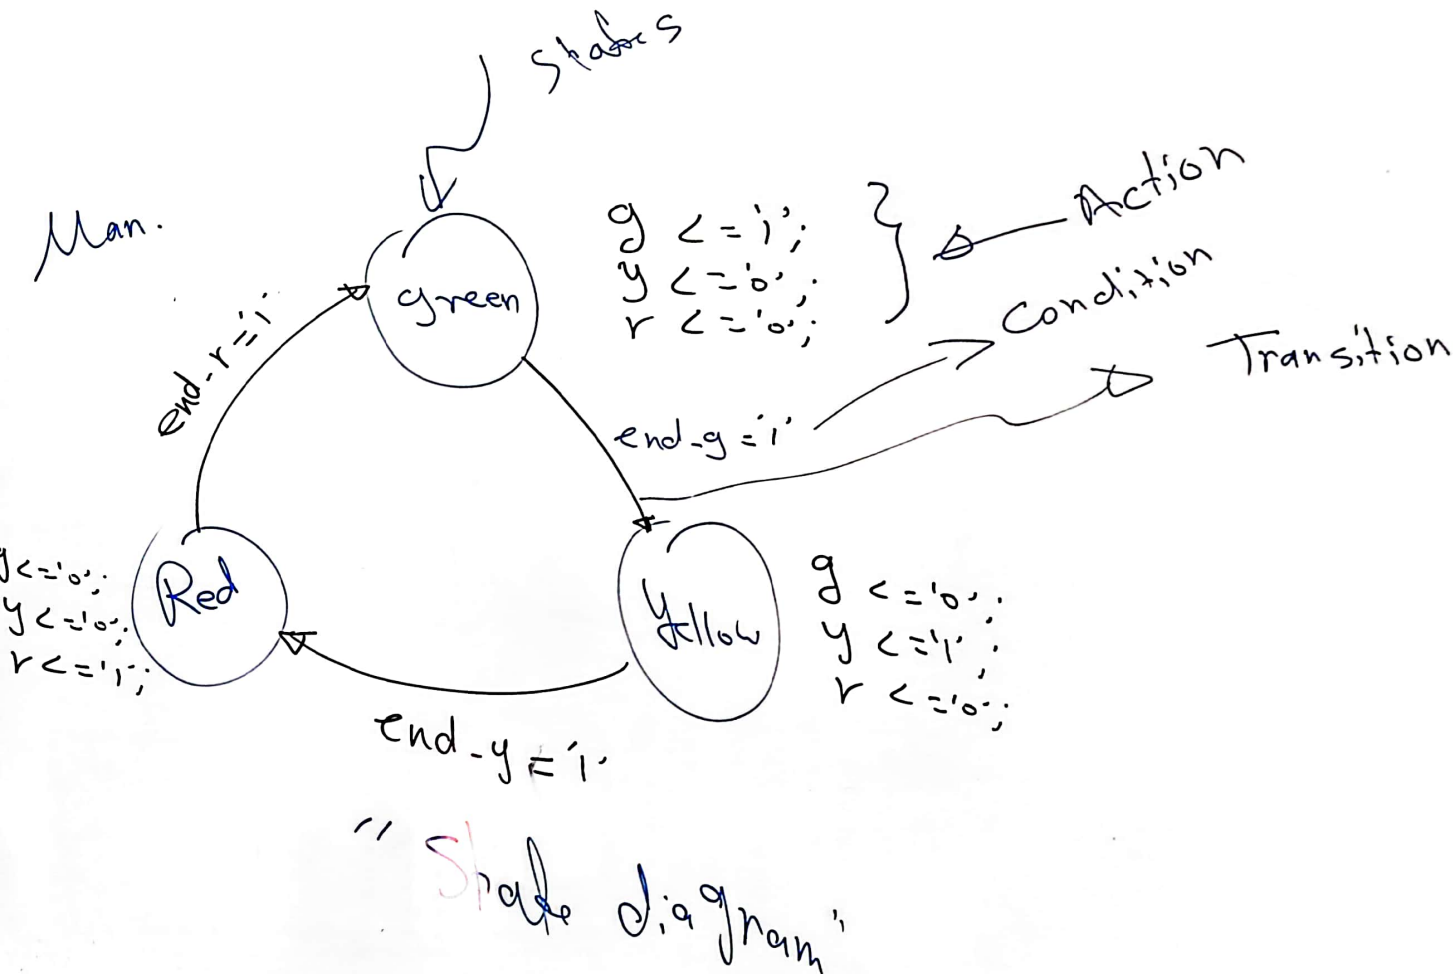 states
Man.
Action
g <= '1';
y <= '0';
r <= '0';
Condition
Transition
green
end_r = '1'
end_g = '1'
Red
g <= '0';
y <= '0';
r <= '1';
Yellow
g <= '0';
y <= '1';
r <= '0';
end_y = '1'
"State diagram"